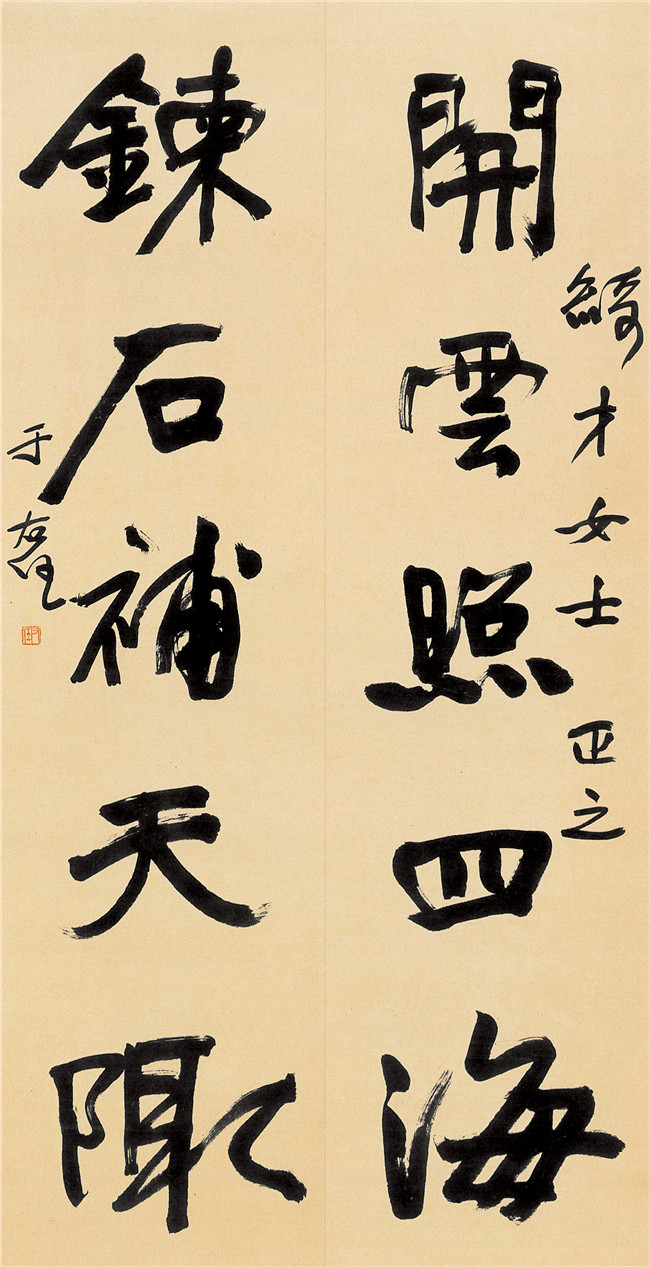 綺才女士 正之
開雲照四海
鍊石補天陬
于右任